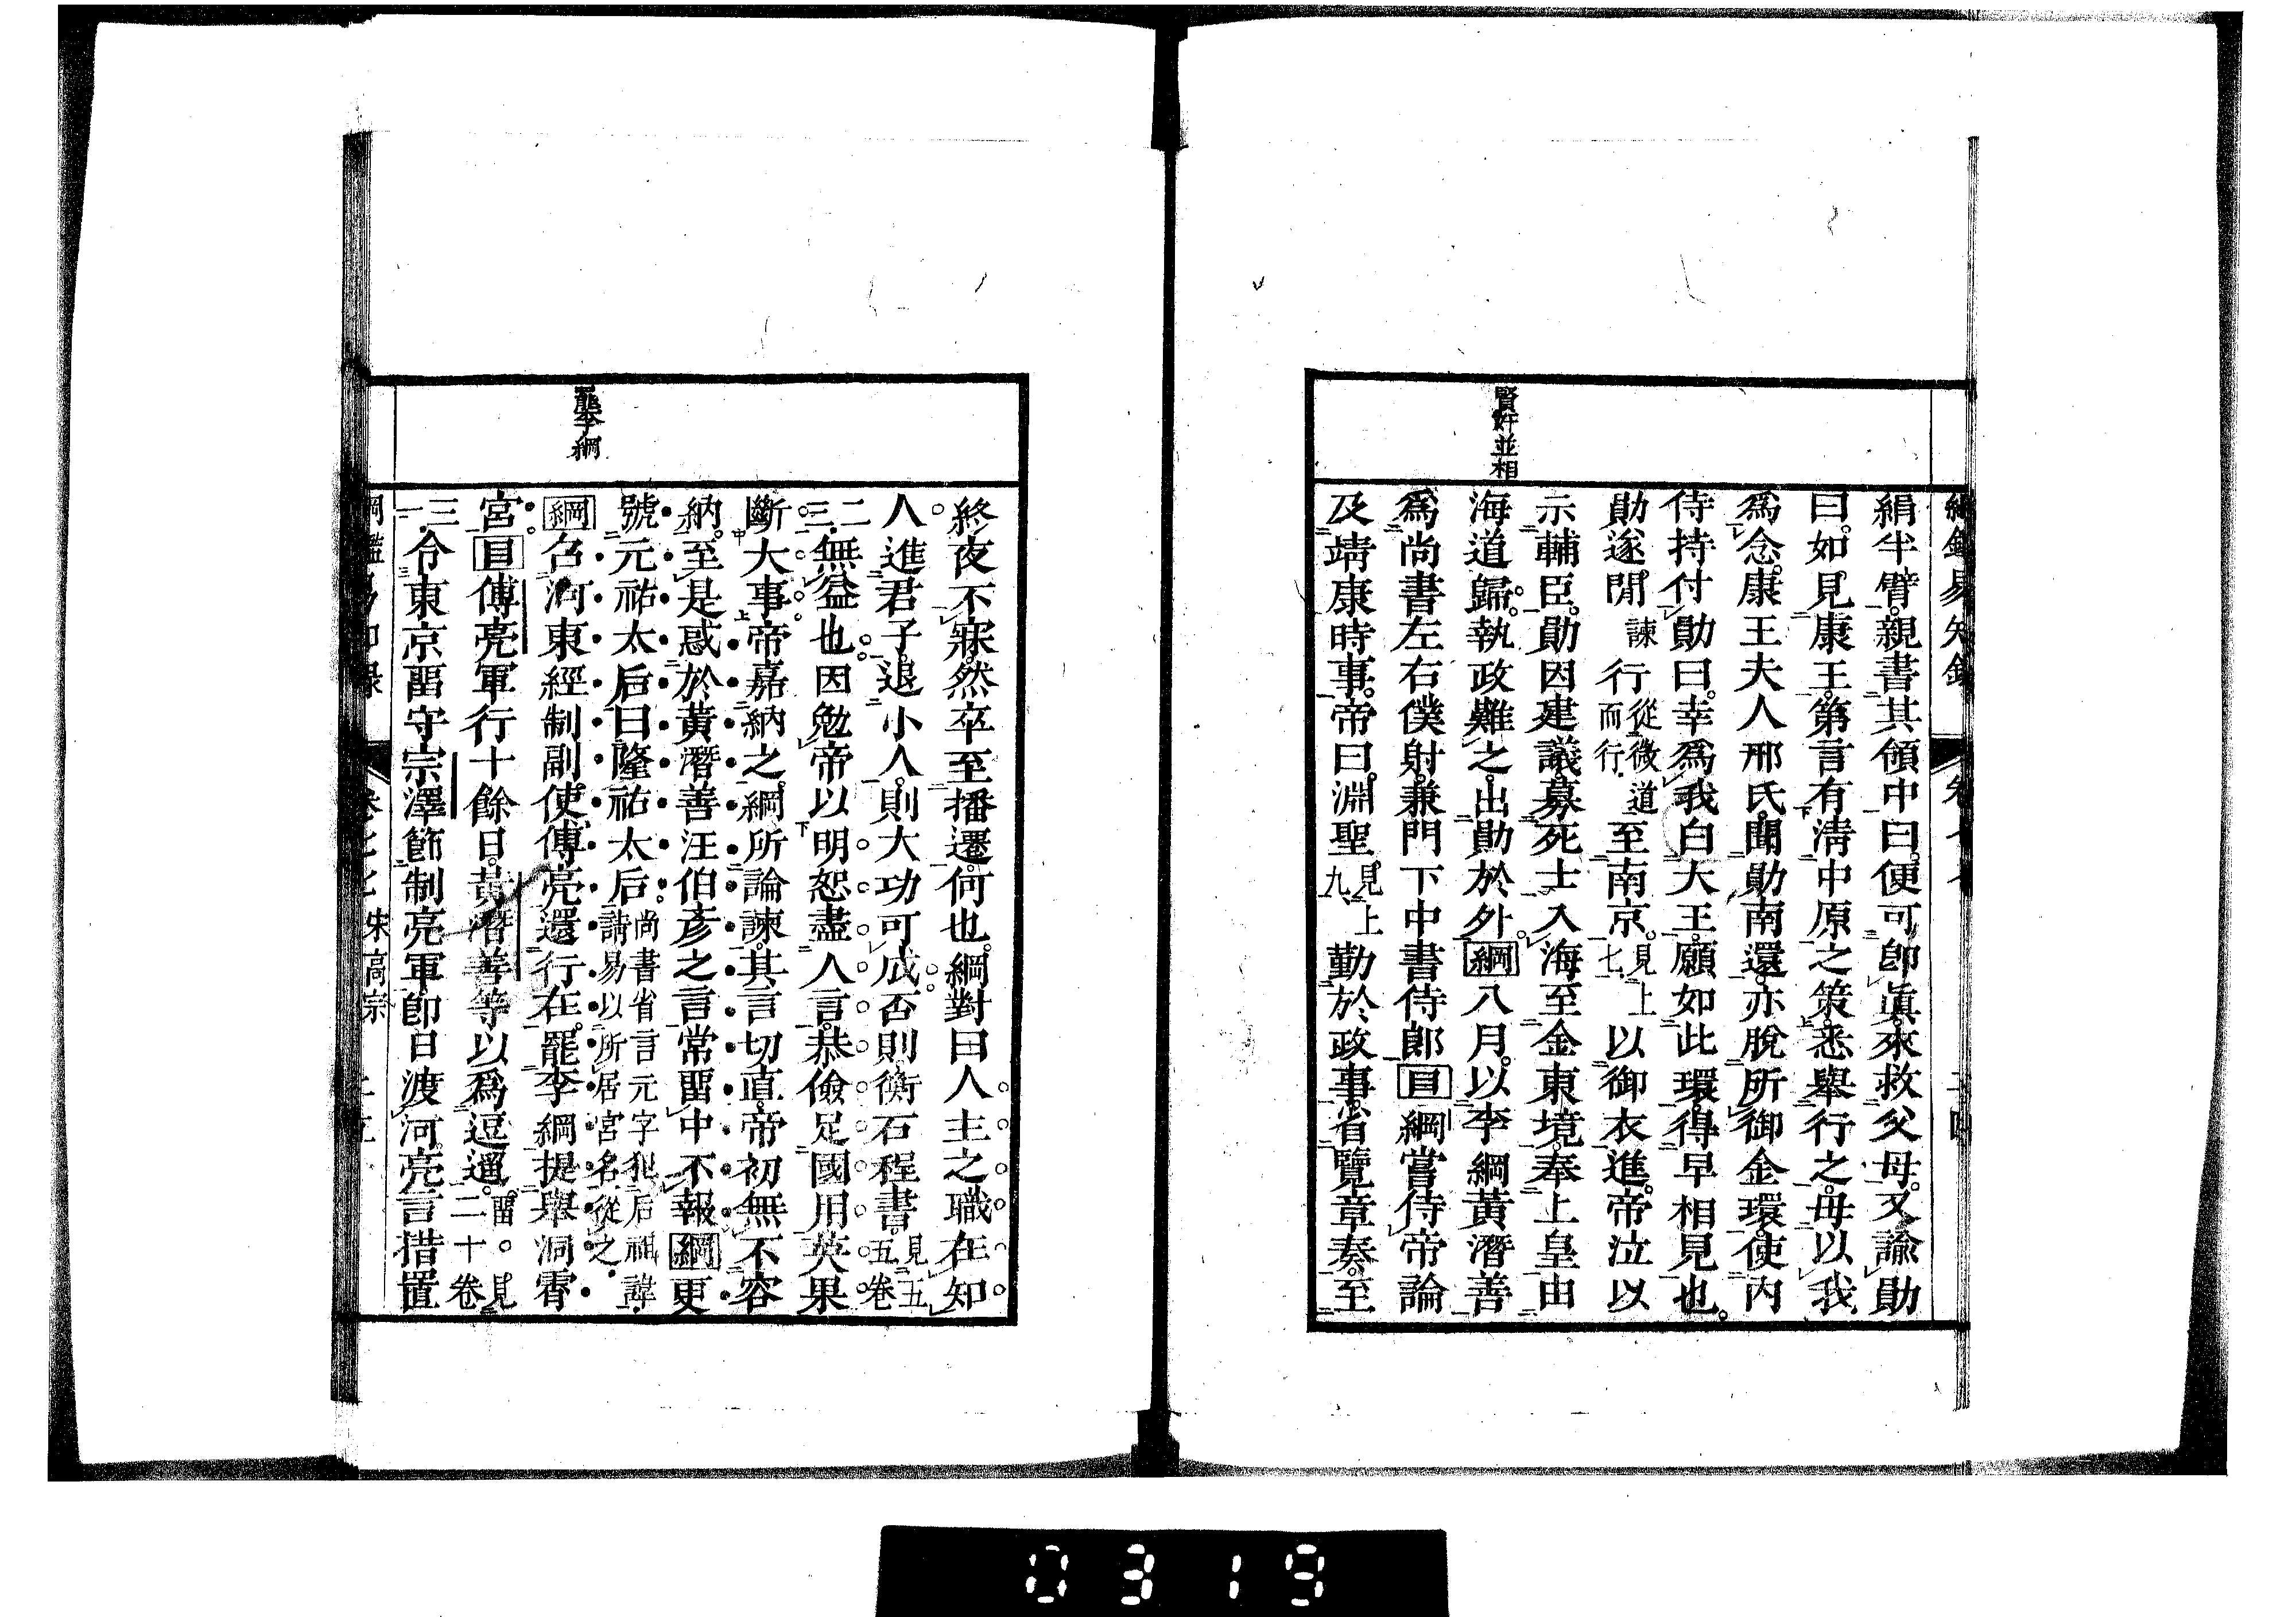 賢奸並相
絹半臂。親書其領中曰。便可卽眞。來救父母。又諭勛
曰。如見康王。第言有淸中原之策。悉舉行之。毋以我
爲念。康王夫人邢氏。聞勛南還。亦脫所御金環。使內
侍持付勛曰。幸爲我白大王。願如此環。得早相見也。
勛遂閒諫行從微道而行至南京。見上七以御衣進。帝泣以
示輔臣。勛因建議。募死士入海至金東境。奉上皇由
海道歸。執政難之。出勛於外。綱八月。以李綱黃潛善
爲尚書左右僕射。兼門下中書侍郎目綱嘗侍帝論
及靖康時事。帝曰。淵聖。見上九勤於政事。省覽章奏。至
罷李綱
終夜不寐。然卒至播遷。何也。綱對曰。人主之職在知
人。進君子。退小人。則大功可成。否則衡石程書。見五五卷
二三無益也。因勉帝以明恕盡人言。恭儉足國用。英果
斷大事。帝嘉納之。綱所論諫。其言切直。帝初無不容
納。至是惑於黃潛善汪伯彥之言。常畱中不報綱更
號元祐太后曰隆祐太后。尚書省言元字犯后祖諱請易以所居宮名從之
綱召河東經制副使傅亮還行在。罷李綱提舉洞霄
宮。目傅亮軍行十餘日。黃潛善等以爲逗遛。畱。見二十卷
三一令東京畱守宗澤節制亮軍。卽日渡河。亮言措置
宋高宗
0319